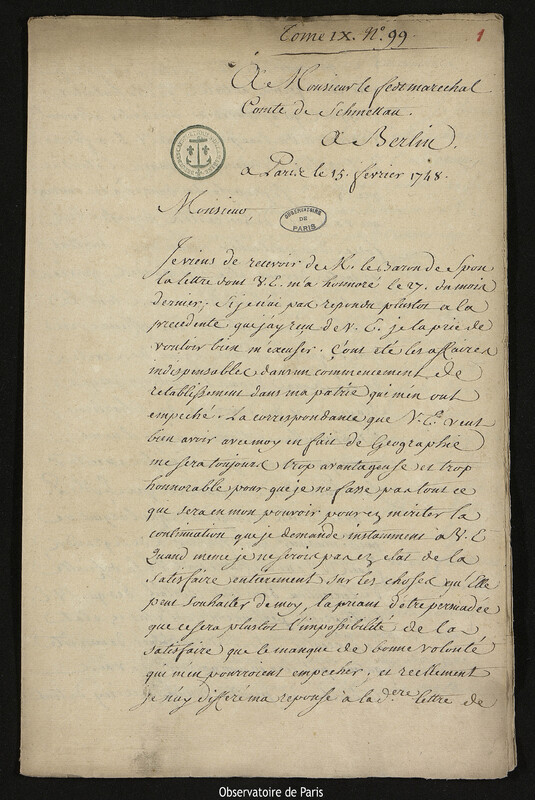 Tome IX. N.º 99
1
A Monsieur le feldmarechal
Comte de Schmettau.
A Berlin.
a Paris le 15. fevrier 1748.
Monsieur,
OBSERVATOIRE
DE
PARIS
Je viens de recevoir de M. le Baron de Spon
la lettre dont V. E. m'a honoré le 27. du mois
dernier; si je n'ai pas repondu plustost a la
precedente que j'ay reçu de V. E. je la prie de
vouloir bien m'excuser. C'ont eté les affaires
indispensables dans un commencement de
retablissement dans ma patrie qui m'en ont
empeché. La correspondance que V. E. veut
bien avoir avec moy en fait de Geographie
me sera toujours trop avantageuse et trop
honnorable pour que je ne fasse pas tout ce
que sera en mon pouvoir pour en meriter la
continuation que je demande instamment a V. E
Quand meme je ne serois pas en etat de la
satisfaire entierement sur les choses qu'Elle
peut souhaiter de moy, la priant d'etre persuadée
que ce sera plustost l'impossibilité de la
satisfaire que le manque de bonne volonté
qui m'en pourroient empecher; et reellement
je n'ay differé ma reponse a la d.ere lettre de
Observatoire de Paris